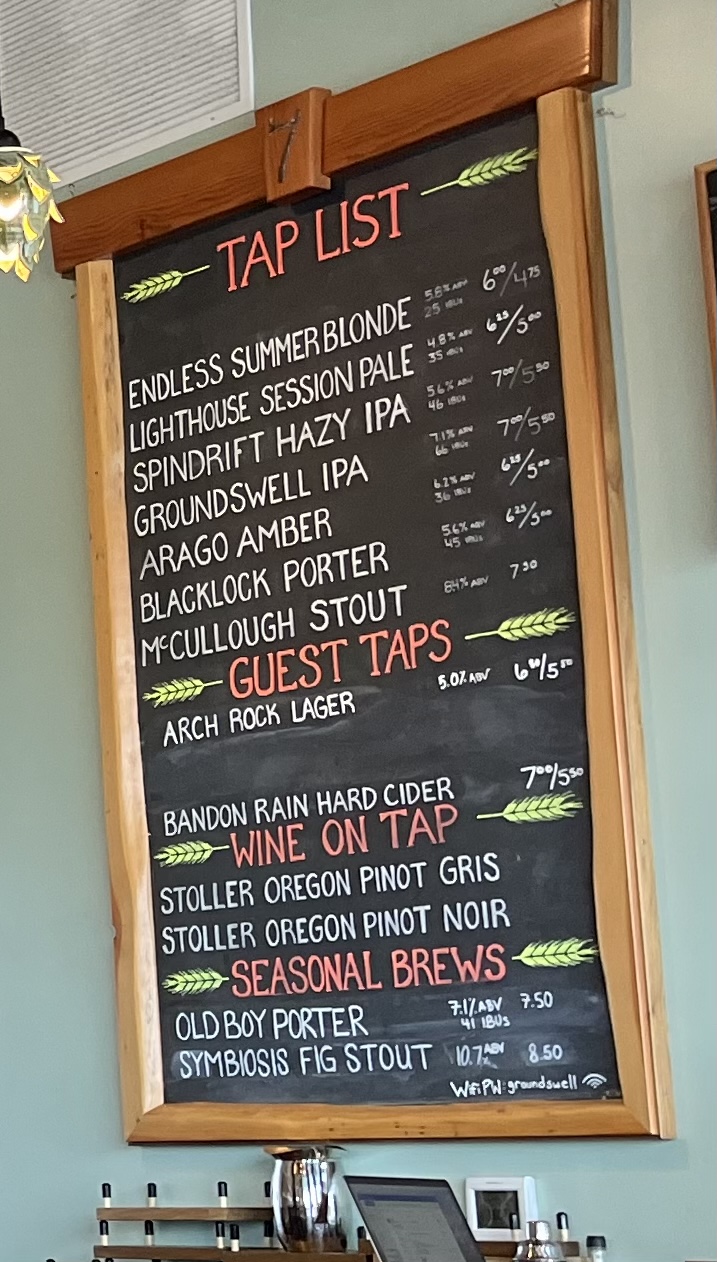 7
TAP LIST
ENDLESS SUMMER BLONDE 5.8% ABV 25 IBUs 6⁰⁰/4⁷⁵
LIGHTHOUSE SESSION PALE 4.8% ABV 35 IBUs 6²⁵/5⁰⁰
SPINDRIFT HAZY IPA 5.6% ABV 46 IBUs 7⁰⁰/5⁵⁰
GROUNDSWELL IPA 7.1% ABV 66 IBUs 7⁰⁰/5⁵⁰
ARAGO AMBER 6.2% ABV 36 IBUs 6²⁵/5⁰⁰
BLACKLOCK PORTER 5.6% ABV 45 IBUs 6²⁵/5⁰⁰
McCULLOUGH STOUT 8.4% ABV 7⁵⁰
GUEST TAPS
ARCH ROCK LAGER 5.0% ABV 6⁵⁰/5⁵⁰
BANDON RAIN HARD CIDER 7⁰⁰/5⁵⁰
WINE ON TAP
STOLLER OREGON PINOT GRIS
STOLLER OREGON PINOT NOIR
SEASONAL BREWS
OLD BOY PORTER 7.1% ABV 41 IBUs 7.50
SYMBIOSIS FIG STOUT 10.7% ABV 8.50
WiFi PW: groundswell